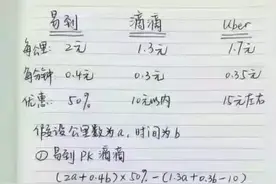 易到 滴滴 Uber
每公里: 2元 1.3元 1.7元
每分钟 0.4元 0.3元 0.35元
优惠: 50% 10元以内 15元左右
假设公里数为a,时间为b
① 易到 PK 滴滴
(2a+0.4b)×50%-(1.3a+0.3b-10)